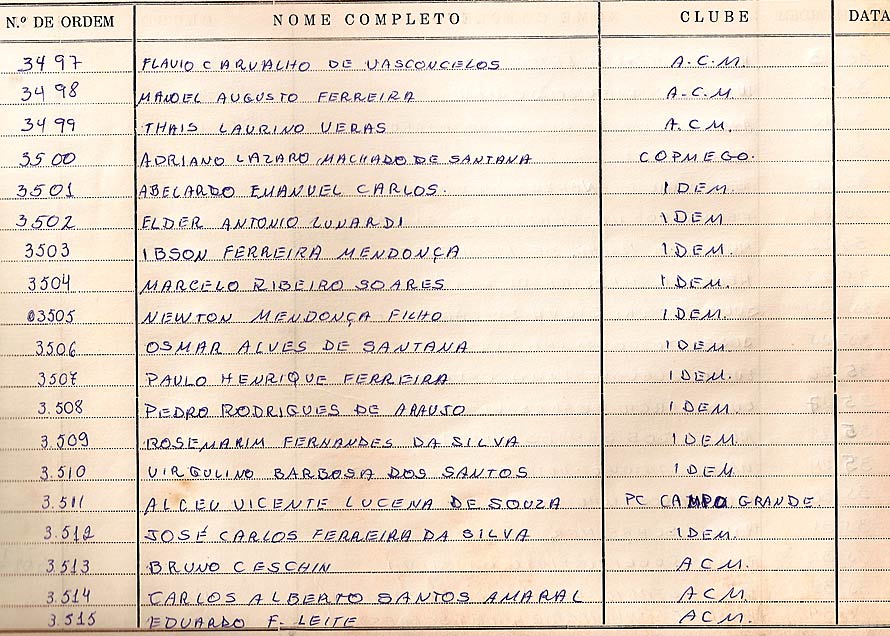 N.º DE ORDEM NOME COMPLETO CLUBE DATA
3497 FLAVIO CARVALHO DE VASCONCELOS A.C.M.
3498 MANOEL AUGUSTO FERREIRA A.C.M.
3499 THAIS LAURINO VERAS A.C.M.
3500 ADRIANO LAZARO MACHADO DE SANTANA COPMEGO.
3501 ABELARDO EMANUEL CARLOS. IDEM.
3502 ELDER ANTONIO LUNARDI IDEM
3503 IBSON FERREIRA MENDONÇA IDEM.
3504 MARCELO RIBEIRO SOARES IDEM.
3505 NEWTON MENDONÇA FILHO IDEM.
3506 OSMAR ALVES DE SANTANA IDEM
3507 PAULO HENRIQUE FERREIRA IDEM.
3.508 PEDRO RODRIGUES DE ARAUJO IDEM.
3.509 ROSEMARIM FERNANDES DA SILVA IDEM.
3.510 VIRGULINO BARBOSA DOS SANTOS IDEM
3.511 ALCEU VICENTE LUCENA DE SOUZA PC CAMPO GRANDE.
3.512 JOSÉ CARLOS FERREIRA DA SILVA IDEM.
3513 BRUNO CESCHIN ACM.
3.514 CARLOS ALBERTO SANTOS AMARAL ACM
3.515 EDUARDO F. LEITE ACM.